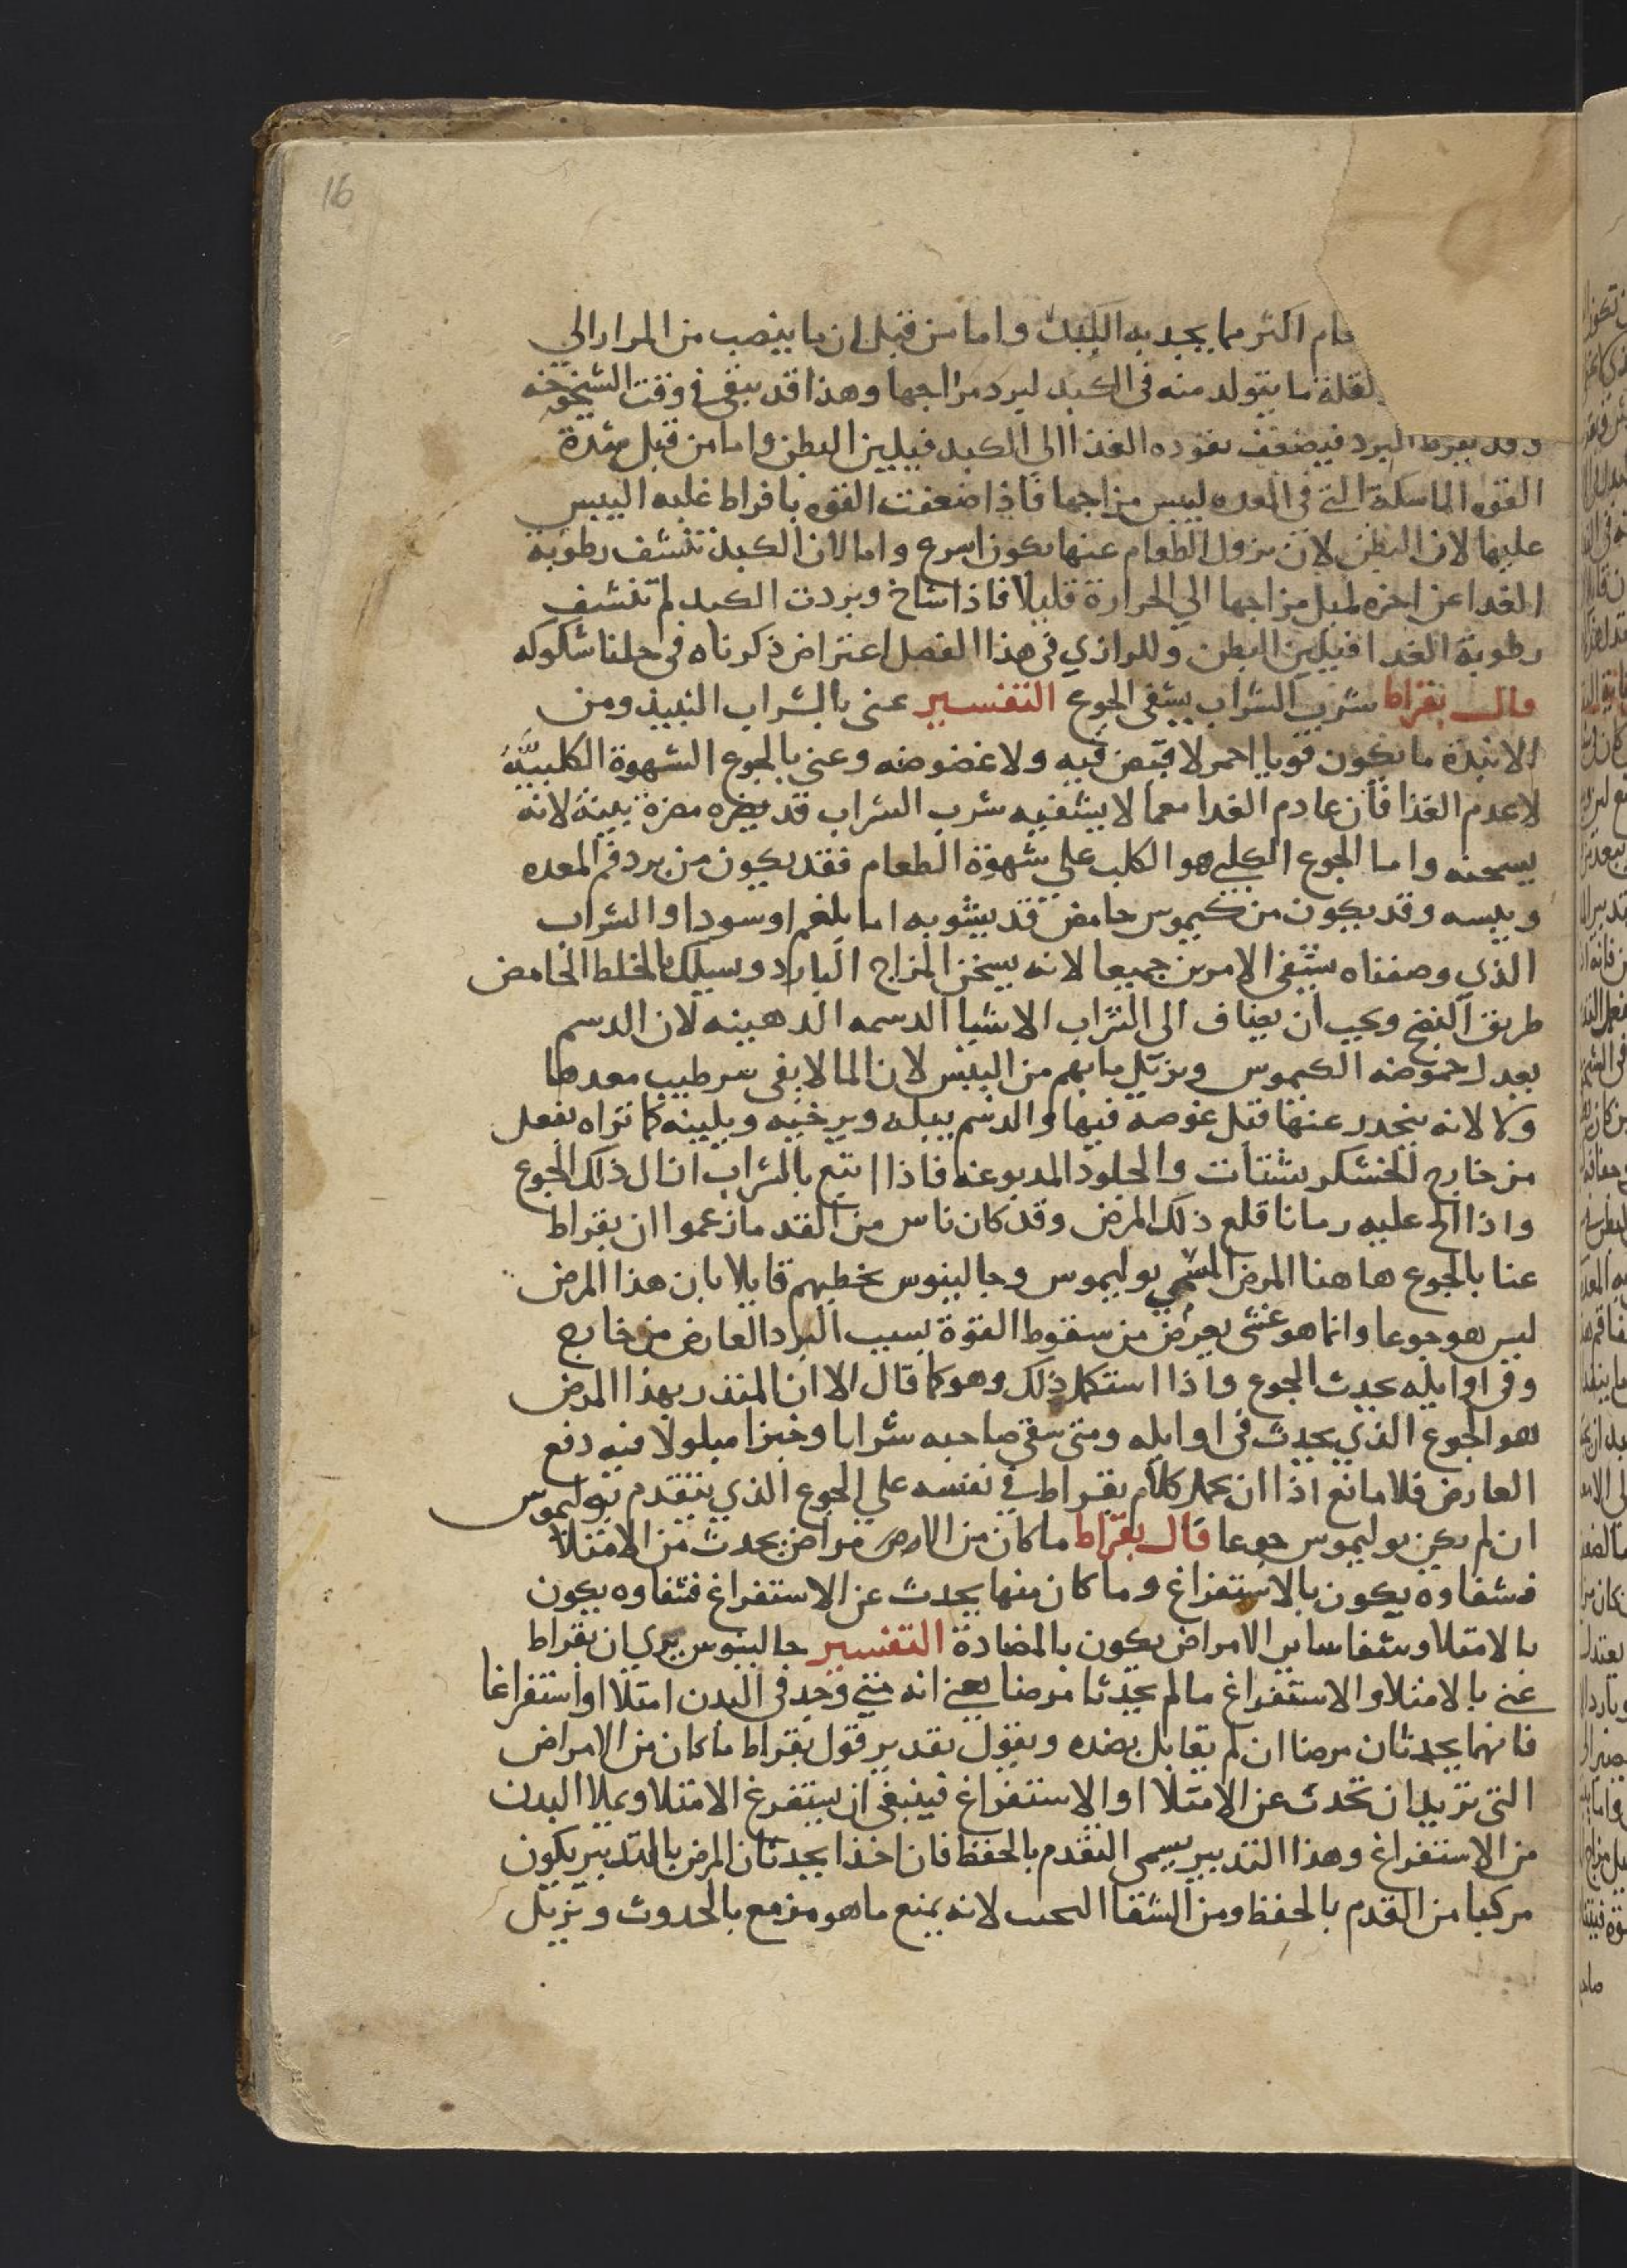 16
اكثر مما يجد به الكبد واما من قبل ان ما ينصب من المرار الي
لقلة ما يتولد منه في الكبد لبرد مزاجها وهذا قد يبقى في وقت الشيخوخه
وقد يفرط البرد فيضعف نفوده الغذا الى الكبد فيلين البطن واما من قبل شدة
القوه الماسكة التي في المعده ليبس مزاجها فاذا ضعفت القوه بافراط غلبه اليبس
عليها لان البطن لان نزول الطعام عنها يكون اسرع واما لان الكبد تنشف رطوبة
الغدا عن اخره لميل مزاجها الي الحرارة قليلا فاذا شاخ وبردت الكبد لم تنشف
رطوبة الغدا فيلين البطن وللرازي في هذا الفصل اعتراض ذكرناه في حلنا شكوكه
قال بقراط شرب الشراب يشفي الجوع التفسير عنى بالشراب النبيذ ومن
الانبذة ما يكون قويا احمر لا قبض فيه ولا غضوضه وعني بالجوع الشهوة الكلبيّة
لا عدم الغذا فان عادم الغدا معما لا يشفيه شرب الشراب قد يضره مضرة بينة لانه
يسخنه واما الجوع الكلبي هو الكلب علي شهوة الطعام فقد يكون من برد فم المعده
ويبسه وقد يكون من كيموس حامض قد يشوبه اما بلغم او سودا والشراب
الذي وصفناه يشفي الامرين جميعا لانه يسخن المزاج البارد وسيلك بالخلط الحامض
طريق النضج ويجب ان يضاف الى الشراب الاشيا الدسمه الدهينه لان الدسم
يعدل حموضه الكيموس ويزيل ما بهم من اليبس لان الما لا يفى بترطيب معدهما
ولا لانه ينحدر عنها قبل غوصه فيها والدسم يبله ويرخيه ويلينه كما تراه يفعل
من خارج والجلود المدبوغه فاذا اتبع بالشراب ازال ذلك الجوع
واذا الح عليه زمانا قلع ذلك المرض وقد كان ناس من القدما زعموا ان بقراط
عنا بالجوع هاهنا المرض المسمي بوليموس وجالينوس يخطيهم قايلا بان هذا المرض
ليس هو جوعا وانما هو غشى يعرض من سقوط القوة بسبب البرد العارض من خارج
وفي اوايله يحدث الجوع واذا استكمل ذلك وهو كما قال الا ان المنذر بهذا المرض
هو الجوع الذي يحدث في اوايله ومتى سقي صاحبه شرابا وخبزا مبلولا فيه دفع
العارض فلا مانع اذا ان يحمل كلام بقراط في نفسه علي الجوع الذي يتقدم بوليموس
ان لم يكن بوليموس جوعا قال بقراط ما كان من الامراض يحدث من الامتلا
فشفاوه يكون بالاستفراغ وما كان منها يحدث عن الاستفراغ فشفاوه يكون
بالامتلا وشفا ساير الامراض يكون بالمضادة التفسير جالينوس يري ان بقراط
عني بالامتلا والاستفراغ ما لم يحدثا مرضا يعني انه متي وجد في البدن امتلا او استفراغا
فانهما يحدثان مرضا ان لم يقابل بضده ويقول تقدير قول بقراط ما كان من الامراض
التي تريد ان تحدث عن الامتلا او الاستفراغ فينبغي ان يستفرغ الامتلا ويملا البدن
من الاستفراغ وهذا التدبير يسمى التقدم بالحفظ فان اخذا يحدثان المرض بالتدبير يكون
مركبا من التقدم بالحفظ ومن الشفا لانه يمنع ما هو مزمع بالحدوث ويزيل